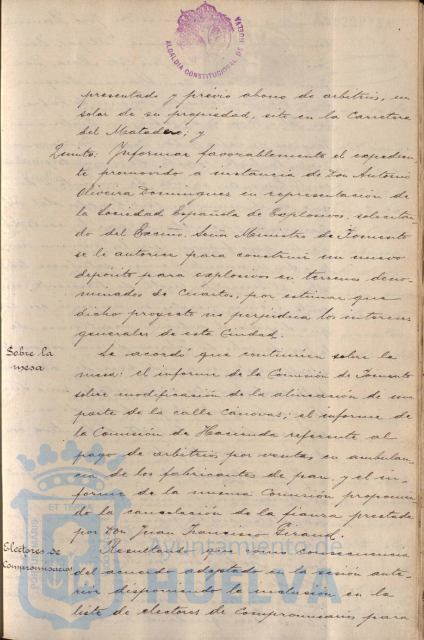 ALCALDIA CONSTITUCIONAL DE
presentado y previo abono de arbitrios, un
solar de su propiedad, sito en la Carretera
del Matadero; y
Quinto. Informar favorablemente el expedien-
te promovido a instancia de Don Antonio
Oliveira Domingues en representación de
la Sociedad Española de Explosivos, solicitan-
do del Excmo. Señor Ministro de Fomento
se le autorice para construir un nuevo
depósito para explosivos en terrenos deno-
minados de Cuartos, por estimar que
dicho proyecto no perjudica los intereses
generales de esta Ciudad.
Sobre la
mesa
Se acordó que continúen sobre la
mesa: el informe de la Comisión de Fomento
sobre modificación de la alineación de una
parte de la calle Cánovas; el informe de
la Comisión de Hacienda referente al
pago de arbitrios por ventas en ambulan-
cia de los fabricantes de pan, y el in-
forme de la misma Comisión proponien-
do la cancelación de la fianza prestada
por Don Juan Francisco
Electores de
Compromisarios
Resultando que como consecuencia
del acuerdo adoptado en la sesión ante-
rior disponiendo la inclusión en la
lista de electores de Compromisarios, para
Ayuntamiento de
HUELVA